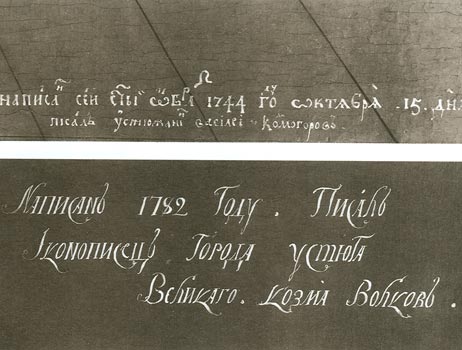 написа сеи сты ѡбра 1744 гоⷣ ѡктября . 15 . дня
писалъ устюжани василеі комогоровъ
Написанъ 1782 Году . Писалъ
Іконописецъ Города устюга
Великаго . козма Волковъ .